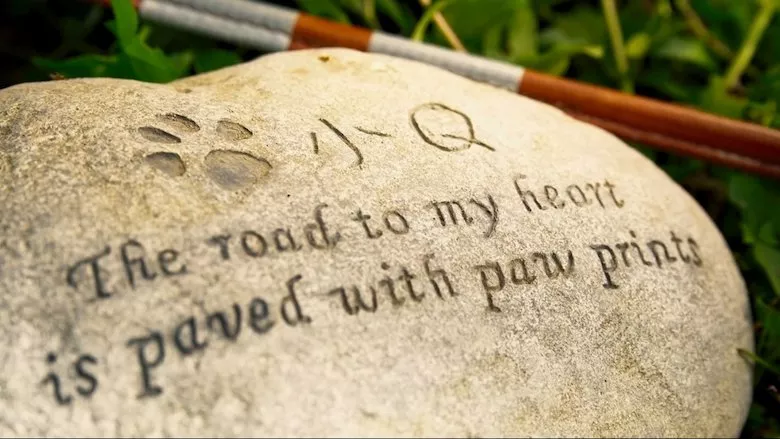 小Q
The road to my heart
is paved with paw prints